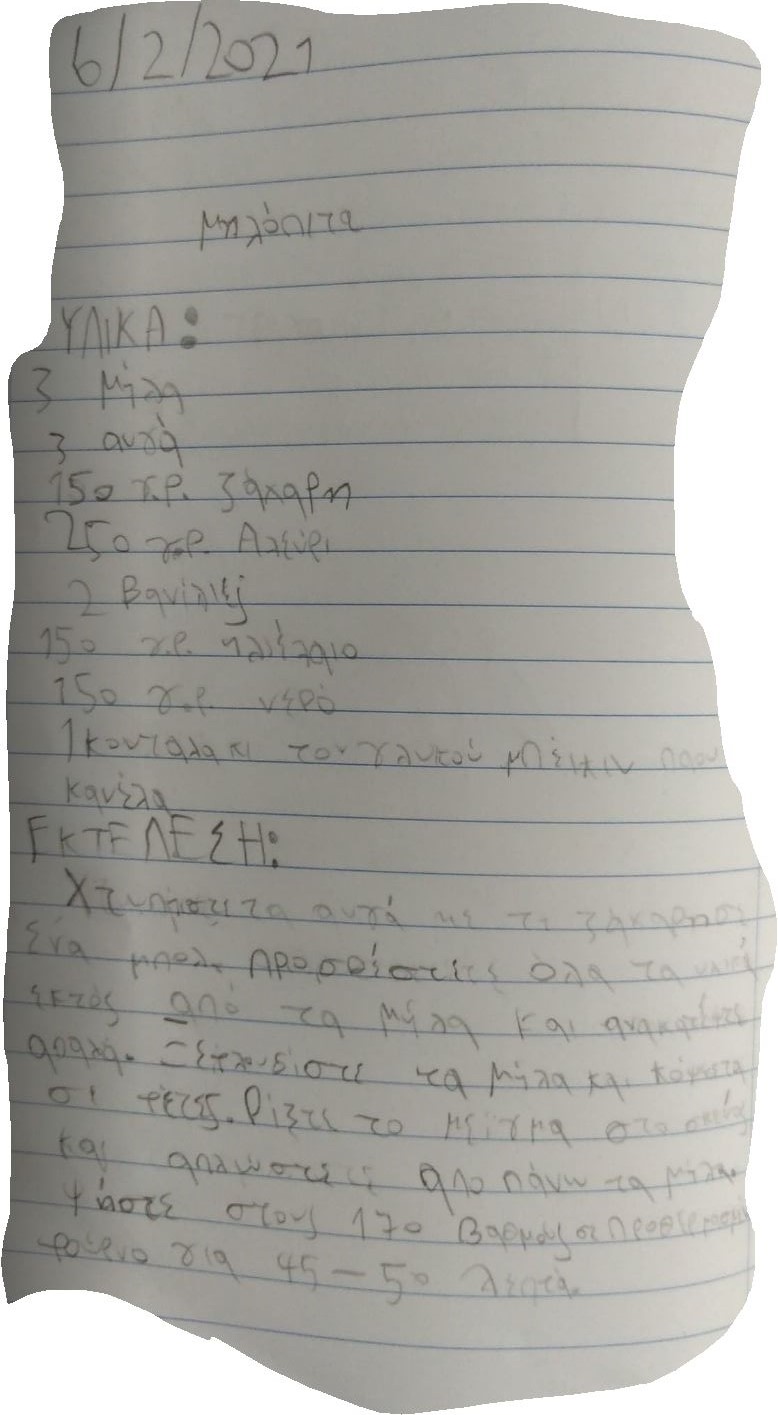 6/2/2021
μηλόπιτα
ΥΛΙΚΑ:
3 μήλα
3 αυγά
150 γ.ρ. ζάχαρη
250 γ.ρ. Αλεύρι
2 Βανίλιες
150 γ.ρ. ηλιέλαιο
150 γ.ρ. νερό
1 κουταλακι του γλυκού μπέικιν παου
κανέλα
ΕΚΤΕΛΕΣΗ:
Χτυπήστε τα αυγά με τι ζάχαρη σε
ένα μπολ. προσθέστε όλα τα υλικά
εκτός από τα μήλα και ανακατέψτε
απαλά. Ξεφλουδιστε τα μήλα και κόψτε τα
σε φέτες. Ρίξτε το μείγμα στο σκεύος
και απλώστε απο πάνω τα μήλα.
Ψήστε στους 170 Βαθμούς σε προθερμασμέ
φούρνο για 45 – 50 λεπτά.